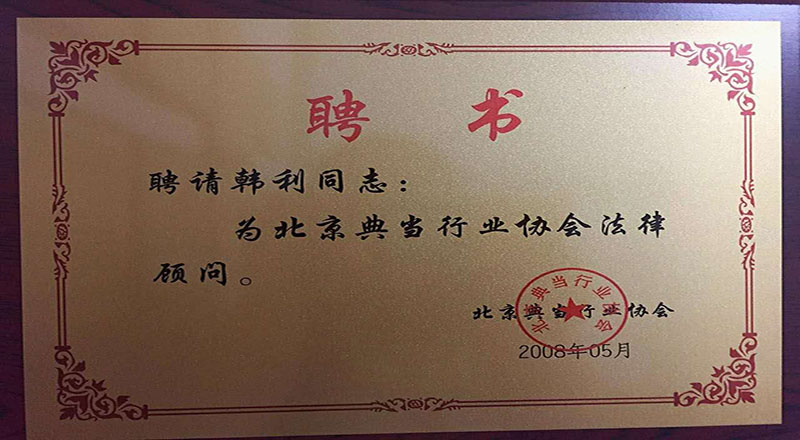 聘 书
聘请韩利同志：
为北京典当行业协会法律
顾问。
北京典当行业协会
北京典当行业协会
2008年05月